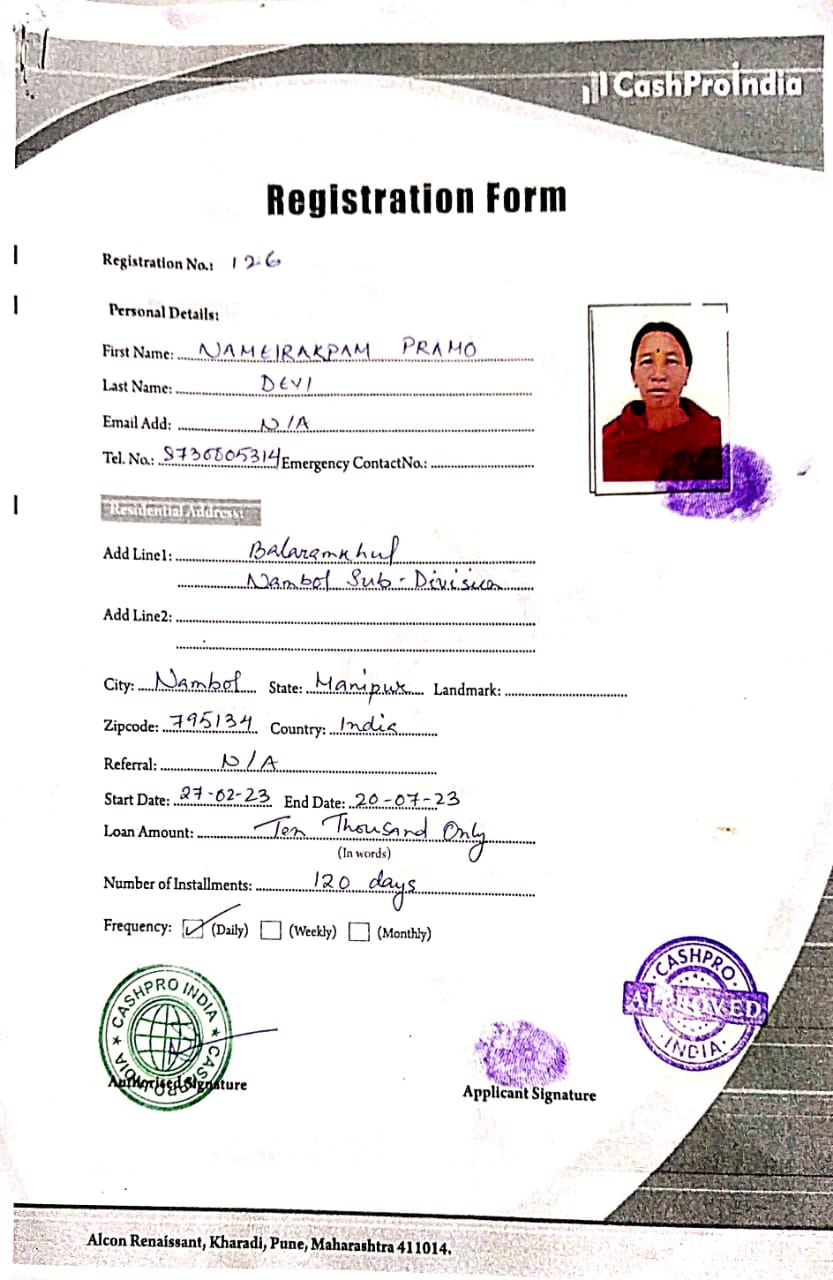 CashProIndia
Registration Form
Registration No.: 126
Personal Details:
First Name: NAMEIRAKPAM PRAMO
Last Name: DEVI
Email Add: N/A
Tel. No.: 8736805314 Emergency ContactNo.:
Residential Address:
Add Line1: Balaramkhul
Nambol Sub-Division
Add Line2:
City: Nambol State: Manipur Landmark:
Zipcode: 795134 Country: India
Referral: N/A
Start Date: 27-02-23 End Date: 20-07-23
Loan Amount: Ten Thousand Only
(In words)
Number of Installments: 120 days
Frequency: (Daily) (Weekly) (Monthly)
CASHPRO INDIA ★ CASHPRO INDIA ★
CASHPRO
APPROVED
INDIA
Authorised Signature
Applicant Signature
Alcon Renaissant, Kharadi, Pune, Maharashtra 411014.